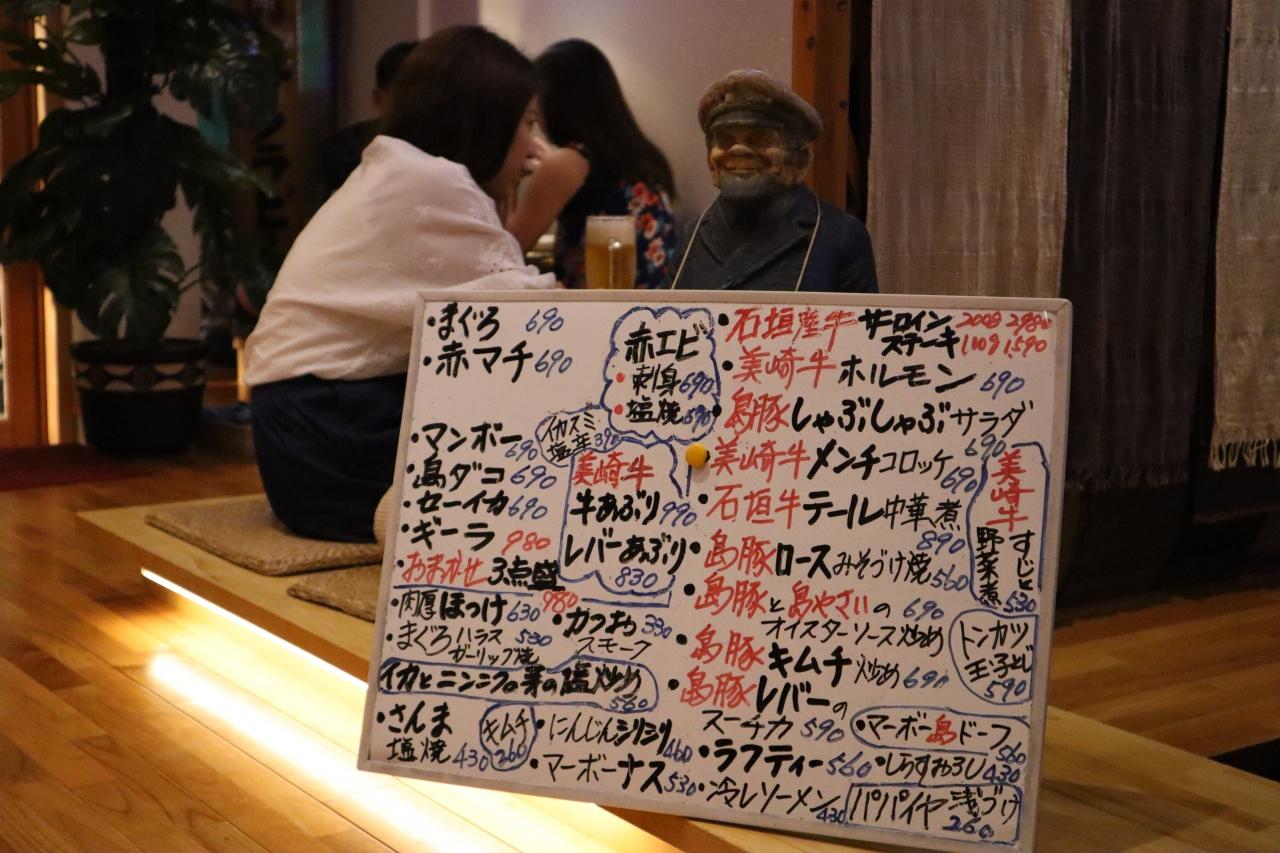 ・まぐろ 690
・赤マチ 690
・マンボー 690
・島ダコ 690
・セーイカ 690
・ギーラ 980
・おまかせ 3点盛 980
・肉厚ほっけ 630
・まぐろハラス
ガーリック焼 530
・かつお 330
スモーク
イカとニンニクの芽の塩炒め 560
・さんま
塩焼 430
キムチ 260
・にんじんシリシリ 460
・マーボーナス 530
赤エビ
・刺身 690
・塩焼 690
イカスミ
塩辛 390
美崎牛
牛あぶり 990
レバーあぶり
830
・石垣産牛 サーロイン
ステーキ 200g 2980
110g 1590
・美崎牛ホルモン 690
・島豚しゃぶしゃぶサラダ 690
・美崎牛メンチコロッケ 690
・石垣牛テール中華煮 890
・島豚ロースみそづけ焼 560
・島豚と島やさいの 690
オイスターソース炒め
・島豚キムチ炒め 690
・島豚レバーの
スーチカ 590
・ラフティー 560
・冷しソーメン 430
美崎牛
すじと
野菜煮 530
トンカツ
玉子とじ
590
・マーボー島ドーフ 560
・しらすおろし 430
パパイヤ浅づけ
260